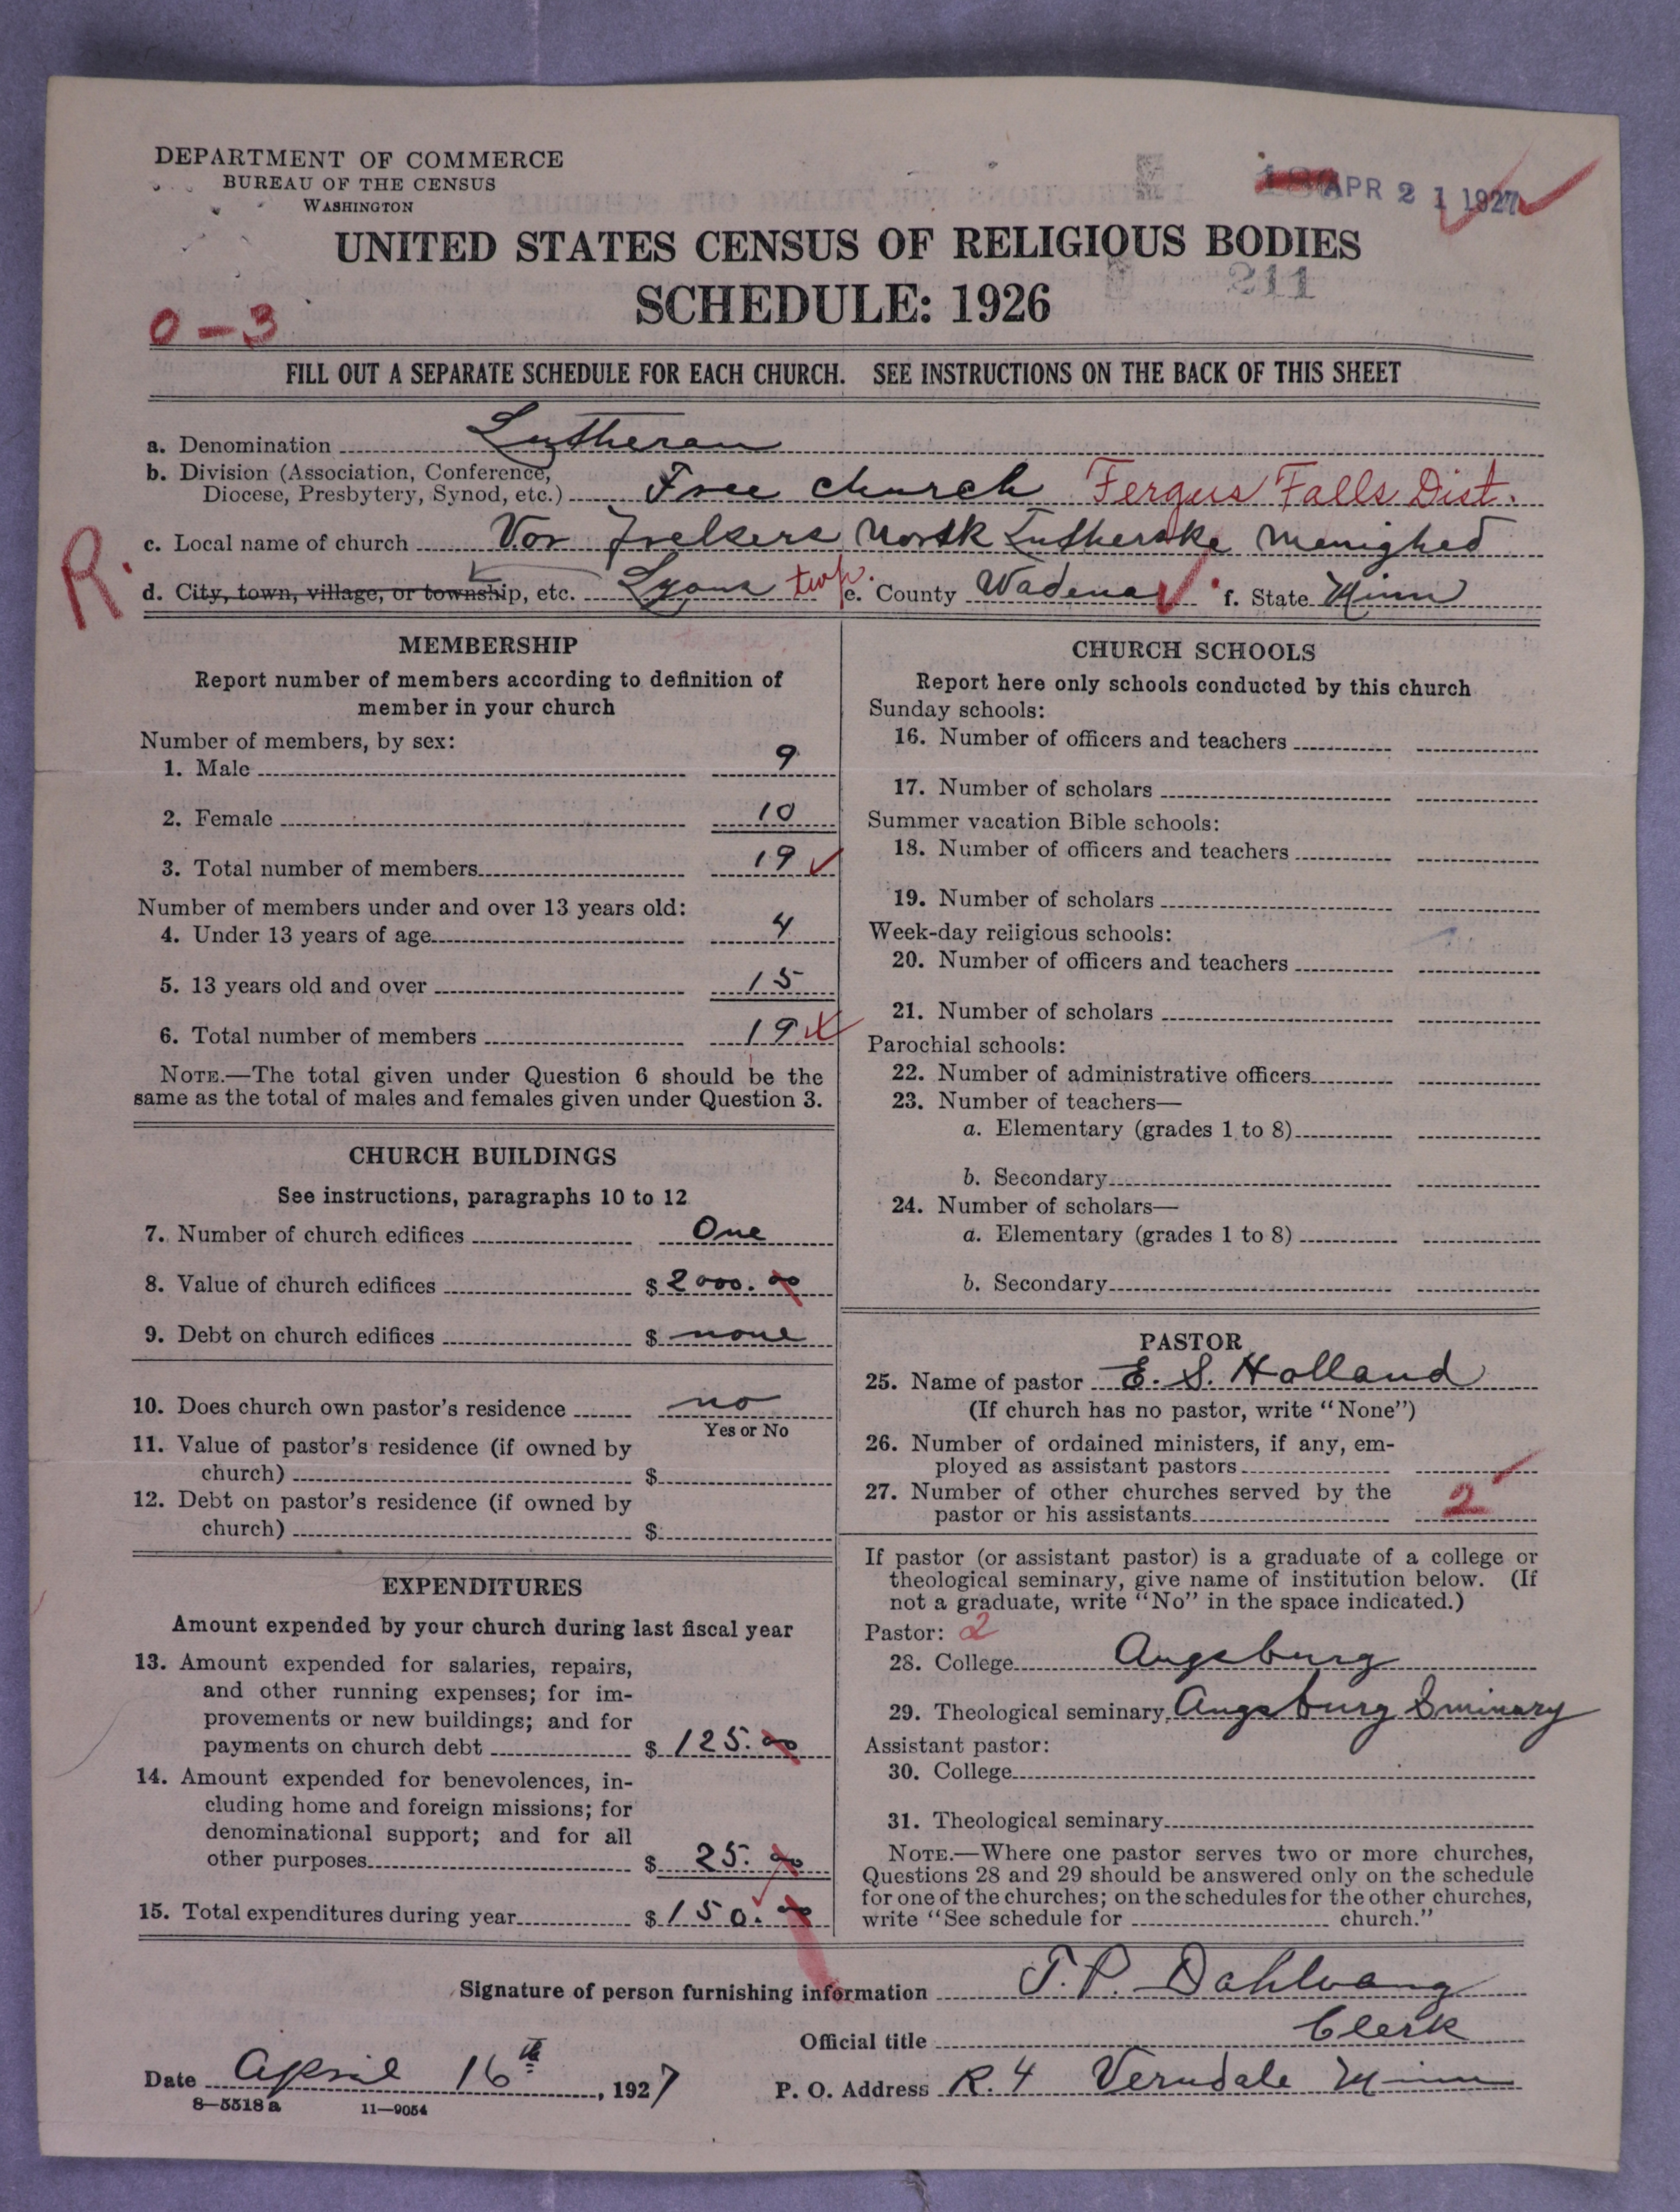 DEPARTMENT OF COMMERCE
BUREAU OF THE CENSUS
WASHINGTON
APR 21 1927
UNITED STATES CENSUS OF RELIGIOUS BODIES
211
SCHEDULE: 1926
0-3
FILL OUT A SEPARATE SCHEDULE FOR EACH CHURCH. SEE INSTRUCTIONS ON THE BACK OF THIS SHEET
a. Denomination Lutheran
b. Division (Association, Conference,
Diocese, Presbytery, Synod, etc.) Free church Fergus Falls Dist.
c. Local name of church Vor Frelsers Norsk Lutherske Menighed
R.
d. City, town, village, or township, etc. Lyons twp. e. County Wadena f. State Minn
MEMBERSHIP
Report number of members according to definition of
member in your church
Number of members, by sex:
1. Male 9
2. Female 10
3. Total number of members 19
Number of members under and over 13 years old:
4. Under 13 years of age 4
5. 13 years old and over 15
6. Total number of members 19
NOTE.—The total given under Question 6 should be the
same as the total of males and females given under Question 3.
CHURCH BUILDINGS
See instructions, paragraphs 10 to 12
7. Number of church edifices One
8. Value of church edifices $ 2000.00
9. Debt on church edifices $ none
10. Does church own pastor's residence no
Yes or No
11. Value of pastor's residence (if owned by
church) $
12. Debt on pastor's residence (if owned by
church) $
EXPENDITURES
Amount expended by your church during last fiscal year
13. Amount expended for salaries, repairs,
and other running expenses; for im-
provements or new buildings; and for
payments on church debt $ 125.00
14. Amount expended for benevolences, in-
cluding home and foreign missions; for
denominational support; and for all
other purposes $ 25.00
15. Total expenditures during year $ 150.00
CHURCH SCHOOLS
Report here only schools conducted by this church
Sunday schools:
16. Number of officers and teachers
17. Number of scholars
Summer vacation Bible schools:
18. Number of officers and teachers
19. Number of scholars
Week-day religious schools:
20. Number of officers and teachers
21. Number of scholars
Parochial schools:
22. Number of administrative officers
23. Number of teachers—
a. Elementary (grades 1 to 8)
b. Secondary
24. Number of scholars—
a. Elementary (grades 1 to 8)
b. Secondary
PASTOR
25. Name of pastor E. S. Holland
(If church has no pastor, write "None")
26. Number of ordained ministers, if any, em-
ployed as assistant pastors
27. Number of other churches served by the
pastor or his assistants 2
If pastor (or assistant pastor) is a graduate of a college or
theological seminary, give name of institution below. (If
not a graduate, write "No" in the space indicated.)
Pastor: 2
28. College Augsburg
29. Theological seminary Augsburg Sminary
Assistant pastor:
30. College
31. Theological seminary
NOTE.—Where one pastor serves two or more churches,
Questions 28 and 29 should be answered only on the schedule
for one of the churches; on the schedules for the other churches,
write "See schedule for church."
Signature of person furnishing information T.P. Dahlvang
Official title Clerk
Date April 16th, 1927
P. O. Address R. 4 Verndale Minn
8—5518 a 11—9054